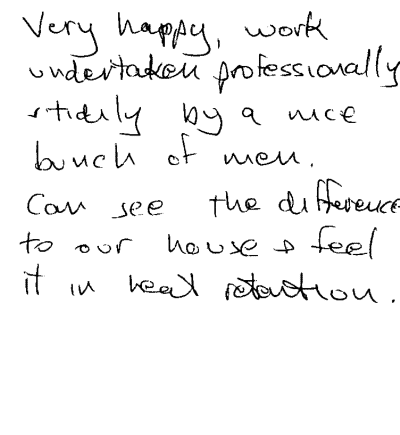 Very happy, work
undertaken professionally
& tidily by a nice
bunch of men.
Can see the difference
to our house & feel
it in heat retention.